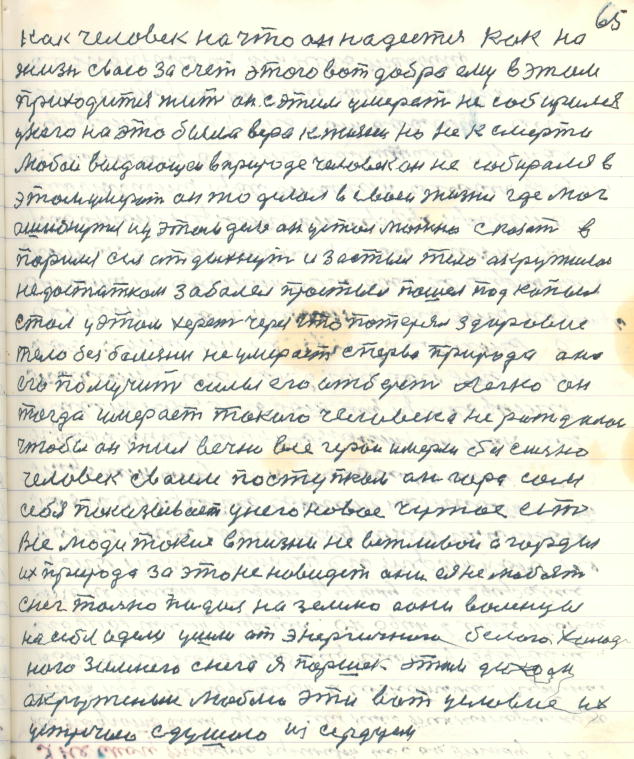 65
как человек на что он надеется как на
жизн своею за счет этого вот добра ему в этом
приходится жит он с этим умерат не собирался
унего на это была вера к жизни но не к смерти
Любой выдающейся в природе человек он не собирался в
этом умерат он то делал в своей жизни где мог
ошибнутся и у этом дело он устал можно сказат в
парился сел отдыхнут и застыл тело окружилос
недостатком забалел простыл пошел под капыл
стал у этом херет через это потерял здаровие
тело без болезни не умерает сперва природа ана
его помучит силы его отберет легко он
тогда имерает такого человека не раждалос
чтобы он жил вечно все герои имерли обиснено
человек своим поступком он гора сам
себя показывает унего новое чужое ест
Все люди такие в жизни не ветливой а гордыи
их природа за это не новидет они ея не любят
снег толко падал на землю а они валенцы
на себя адели ушли от энергичного белого холод
ного зимнего снега я паршек этим
акруженыи люблю эти вот условие их
устречаю с душою из сердцем